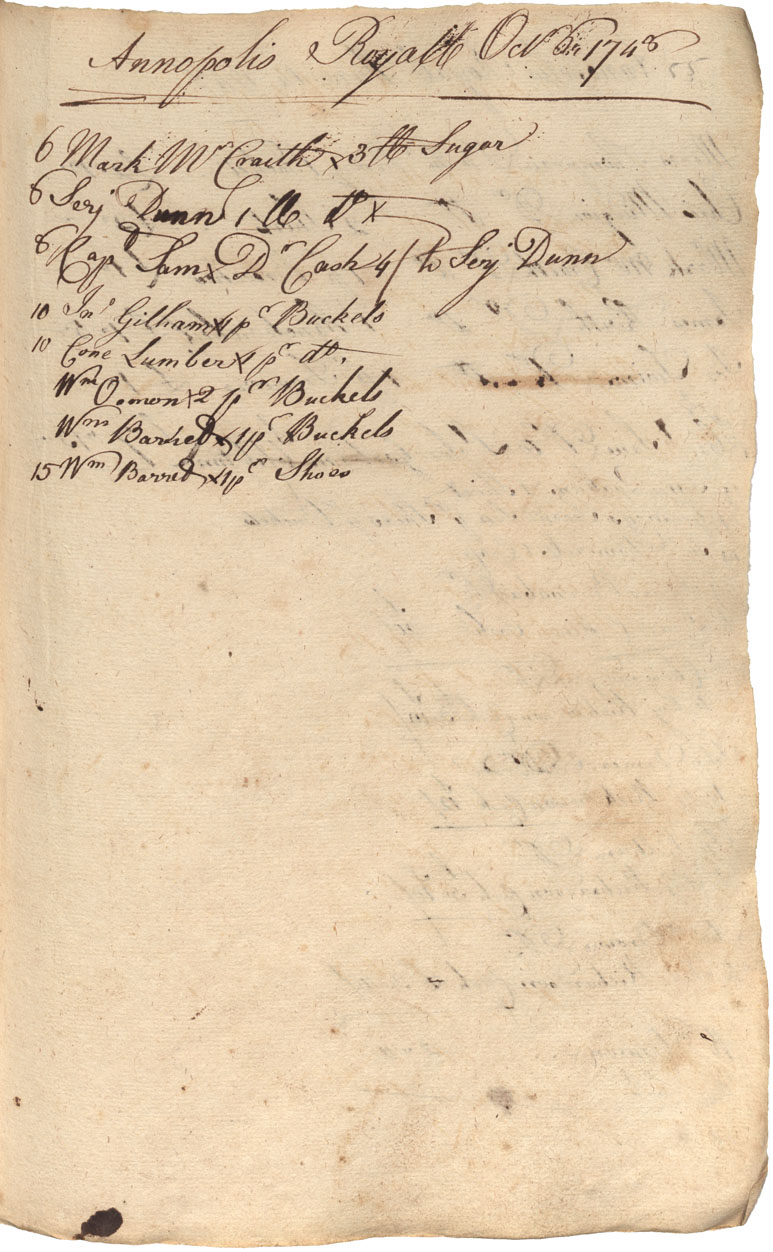 Annopolis Royall Octobr 1748
6 Mark McCraith x 3 lb Sugar
8 Serj Dunn 1 lb do x
8 Cap Sam x Dr Cash 4/ to Serj Dunn
10 Jno Gilham x 1 pr Buckels
10 Cone Lumber x 1 pr do.
Wm Oemon x 2 pr Buckels
Wm Barred x 1 pr Buckels
15 Wm Barred x 1 pr Shoes